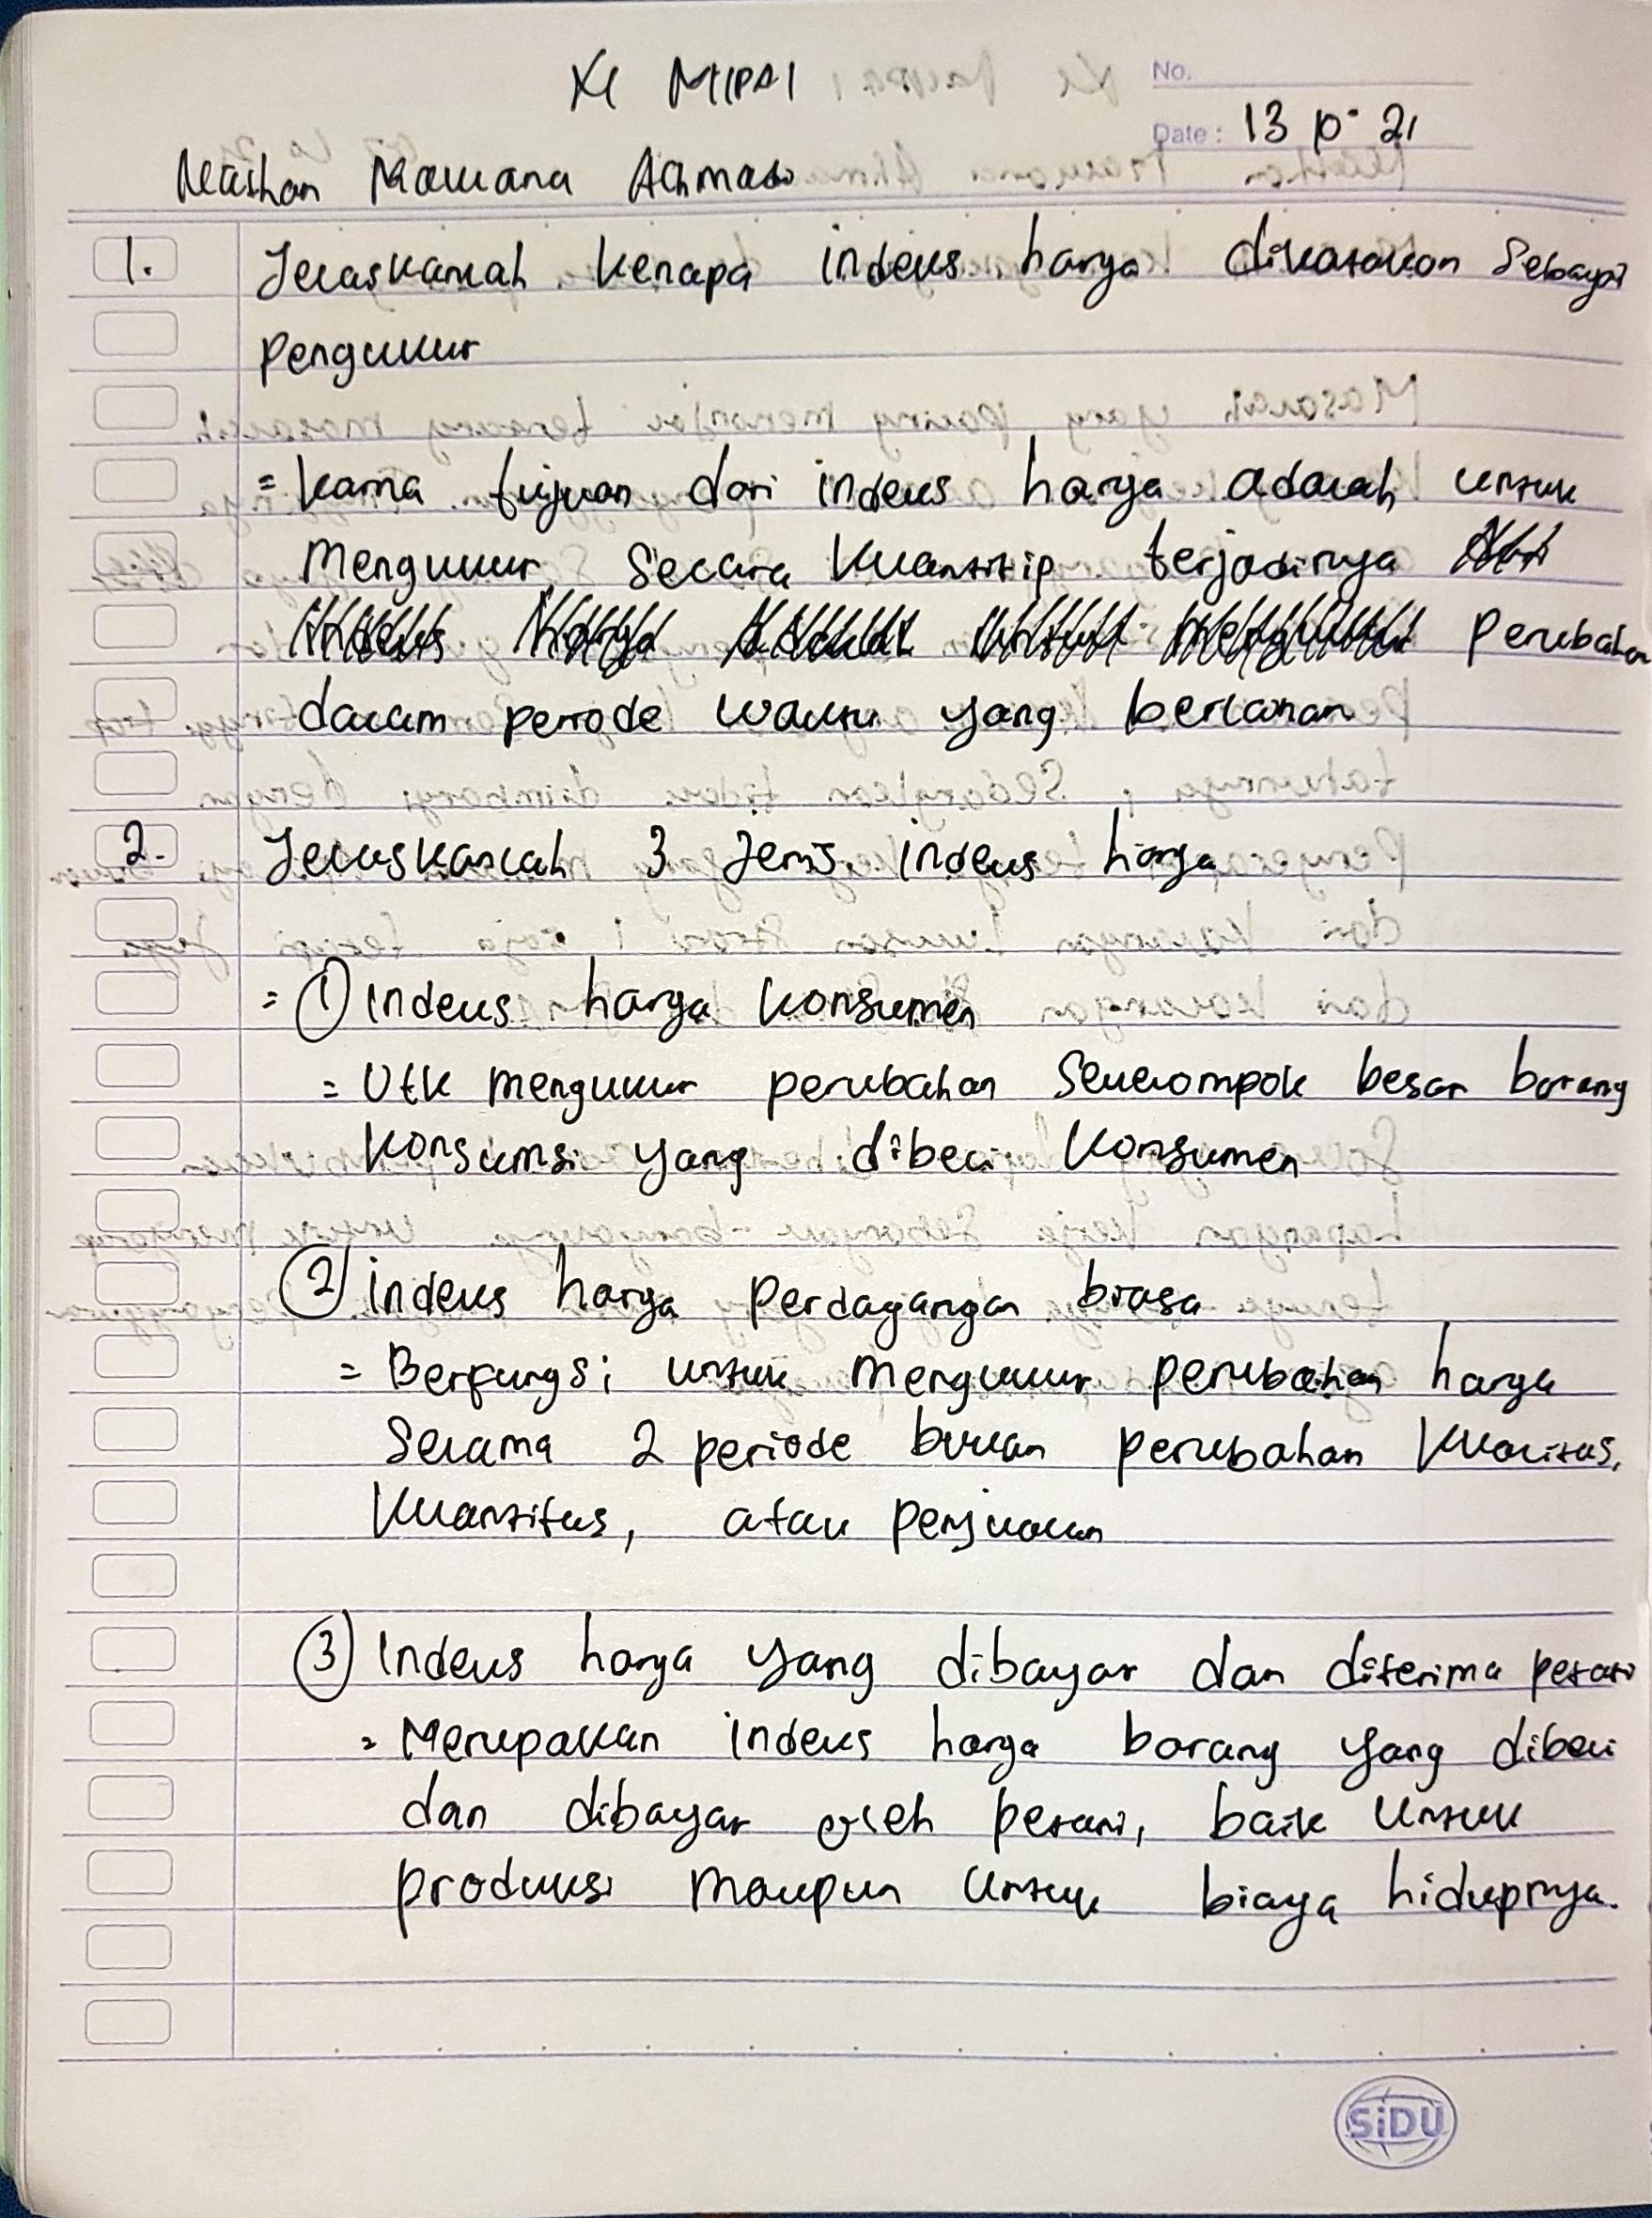 XI MIPA 1
No.
Date: 13 10 21
Maulana
1. Jelaskanlah kenapa indeks harga dikatakan sebagai
pengukur
= karna tujuan dari indeks harga adalah untuk
mengukur secara kuantitip terjadinya
indeks harga adalah untuk mengukur perubahan
dalam periode waktu yang berlainan
2. Jelaskanlah 3 jenis indeks harga
= ① Indeks harga konsumen
= Utk mengukur perubahan sekelompok besar barang
konsumsi yang dibeli konsumen
② indeks harga perdagangan biasa
= Berfungsi untuk mengukur perubahan harga
selama 2 periode bukan perubahan kualitas,
kuantitas, atau penjualan
③ Indeks harga yang dibayar dan diterima petani
= Merupakan indeks harga barang yang dibeli
dan dibayar oleh petani, baik untuk
produksi maupun untuk biaya hidupnya.
SiDU